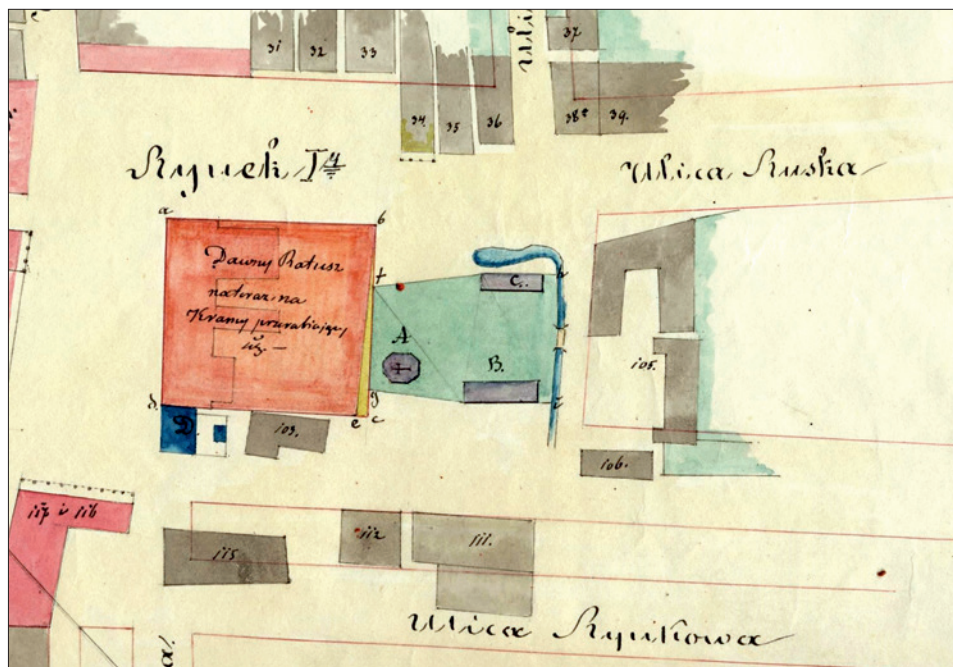 31 32 33
34. 35 36
37
38ª 39.
Rynek I
Ulica Ruska
a b
Dawny Ratusz
na teraz na
Kramy przerabiający
się. —
f
C. h
A
B.
g i
d. e c
D
103.
105.
106.
117 i 116
115
112
111.
Ulica Rynkowa